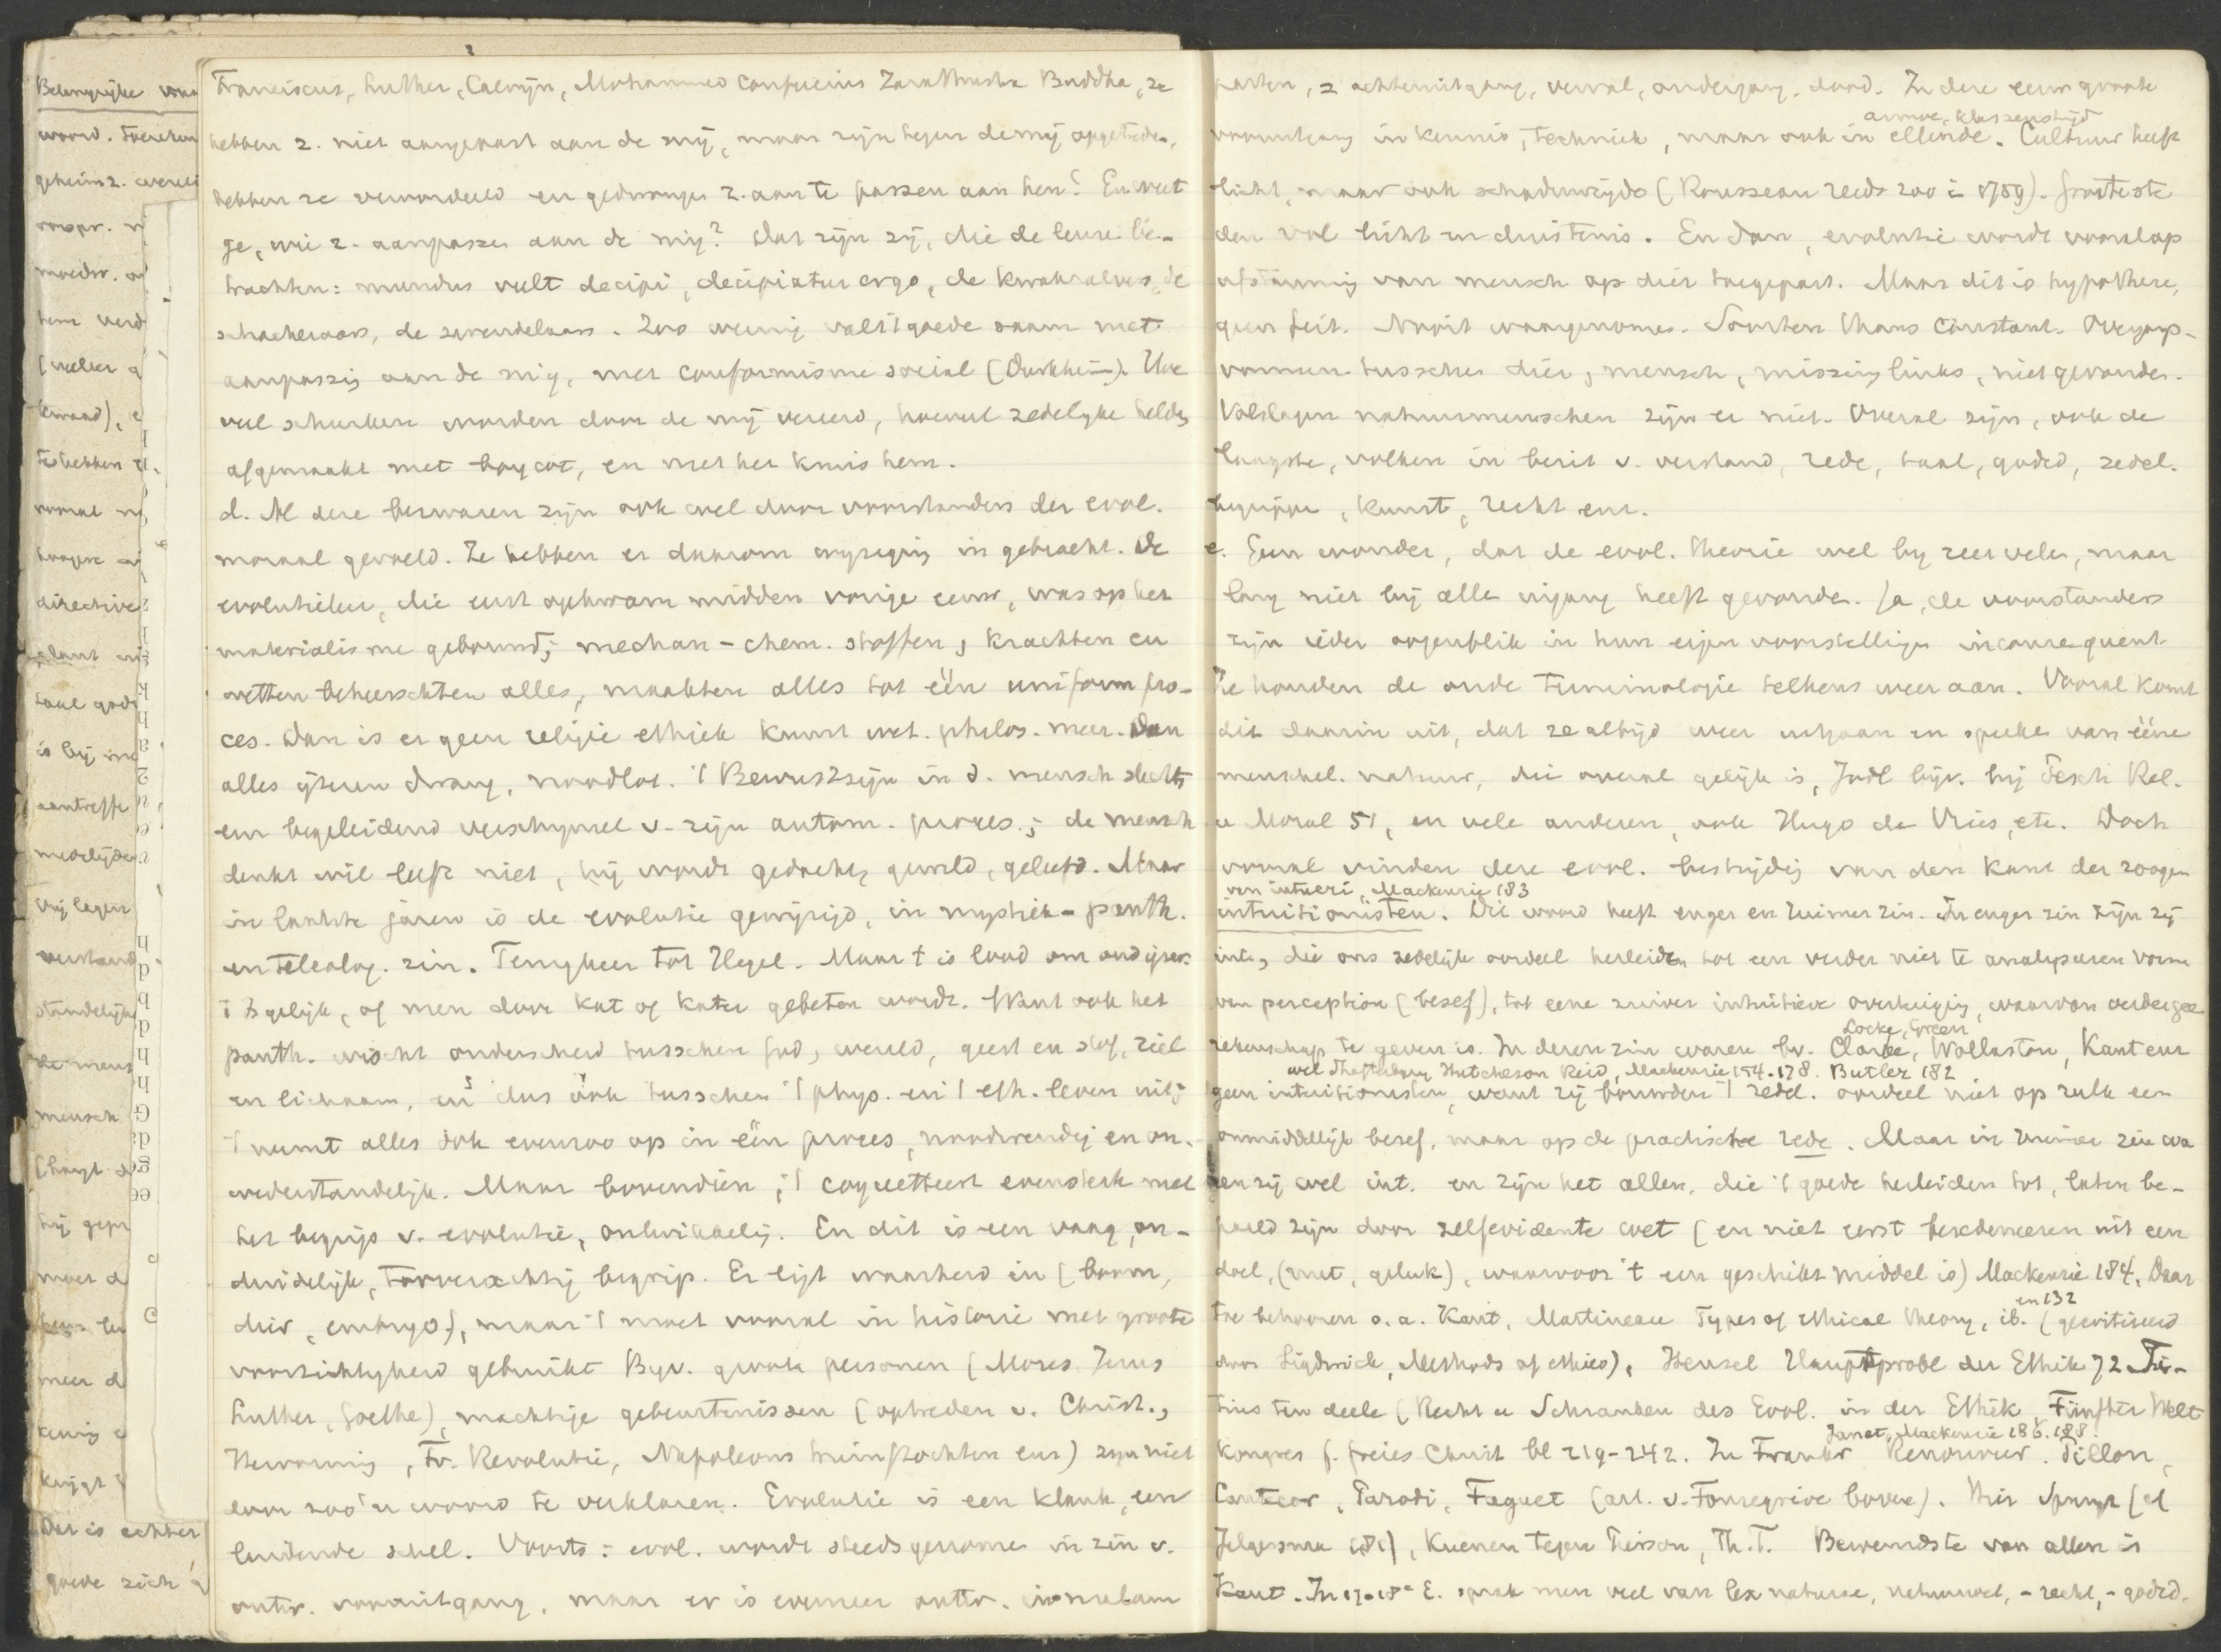 Belangrijke
woord.
geheim z. wereld
moeder.
hem
(welker
te hebben
vooral
hoogere
directive
taal
is bij
aantreffe
medelijde
Wij leggen
verstand
standelijk
de mens
mensch
(hangt
hij
moet d
meer d
krijgt
Dat is echter
goede zich
Franciscus, Luther, Calvijn, Mohammed Confucius Zarathustra Buddha, ze
hebben z. niet aangepast aan de mij, maar zijn tegen de mij opgetreden,
hebben ze veroordeeld en gedwongen z. aan te passen aan hen! En weet
ge, wie z. aanpassen aan de mij? Dat zijn zij, die de leuze be-
trachten: mundus vult decipi, decipiatur ergo, de kwakzalvers, de
schacheraars, de zwendelaars. Zoo weinig valt 't goede saam met
aanpassing aan de mij, met conformisme social (Durkheim). Hoe
veel schurken worden door de mij vereerd, hoeveel zedelijke helden
afgemaakt met boycot, en met het kruis hem.
d. Al deze bezwaren zijn ook wel door voorstanders der evol.
moraal gevoeld. Ze hebben er daarom wijziging in gebracht. De
evolutieleer, die eerst opkwam midden vorige eeuw, was op het
materialisme gebouwd; mechan-chem. stoffen, krachten en
wetten beheerschten alles, maakten alles tot één uniform pro-
ces. Dan is er geen religie ethiek kunst wet. philos. meer. Dan
alles ijzeren dwang, noodlot. 't Bewustzijn in d. mensch slechts
een begeleidend verschijnsel v. zijn autom. proces; de mensch
denkt wil leeft niet, hij wordt gedacht, gewild, geleefd. Maar
in laatste jaren is de evolutie gewijzigd, in mystiek-panth.
en teleolog. zin. Terugkeer tot Hegel. Maar 't is lood om oud ijzer.
't Is gelijk, of men door kat of kater gebeten wordt. Want ook het
panth. wischt onderscheid tusschen God, wereld, geest en stof, ziel
en lichaam, en dus ook tusschen 't phys. en 't eth. leven uit;
't neemt alles ook evenzoo op in één proces, noodwendig en on-
wederstandelijk. Maar bovendien; 't coquetteert evensterk met
het begrip v. evolutie, ontwikkeling. En dit is een vaag, on-
duidelijk, toeverachtig begrip. Er ligt waarheid in (boom,
dier, embryo), maar 't moet vooral in historie met groote
voorzichtigheid gebruikt Bijv. groote personen (Mozes Jezus
Luther, Goethe), machtige gebeurtenissen (optreden v. Christ.,
Hervorming, Fr. Revolutie, Napoleons triumftochten enz) zijn niet
door zoo'n woord te verklaren. Evolutie is een klank, een
luidende schel. Voorts: evol. wordt steeds genomen in zin v.
ontw. vooruitgang, maar er is evenzeer ontw. in malam
partem, = achteruitgang, verval, ondergang, dood. In deze eeuw groote
armoe, klassenstrijd
vooruitgang in kennis, techniek, maar ook in ellende. Cultuur heeft
licht, maar ook schaduwzijde (Rousseau reeds zoo in 1750). Grootste
den vol licht en duisternis. En dan, evolutie wordt voorloop
afstamming van mensch op dier toegepast. Maar dit is hypothese,
geen feit. Nooit waargenomen. Soorten thans constant. Overgangs-
vormen tusschen dier, mensch, missing links, niet gevonden.
Volslagen natuurmenschen zijn er niet. Overal zijn, ook de
laagste, volken in bezit v. verstand, rede, taal, godsd, zedel.
begrippen, kunst, recht enz.
e. Geen wonder, dat de evol. theorie wel bij zeer velen, maar
lang niet bij alle ingang heeft gevonden. Ja, de voorstanders
zijn ieder oogenblik in hun eigen voorstelling inconsequent
Ze houden de oude terminologie telkens weer aan. Vooral komt
dit daarin uit, dat ze altijd weer uitgaan en spreken van ééne
menschel. natuur, die overal gelijk is, Jodl bijv. bij Pesch Rel.
u Moral 51, en vele anderen, ook Hugo de Vries, etc. Doch
vooral vinden deze evol. bestrijding van den kant der zoogen
van intueri, Mackenzie 183
intuitionisten. Dit woord heeft enger en ruimer zin. In enger zin zijn zij
int., die ons zedelijk oordeel herleiden tot een verder niet te analyseeren vorm
van perception (besef), tot eene zuiver intuitieve overtuiging, waarvan verder geen
Locke, Green
rekenschap te geven is. In dezen zin waren bv. Clarke, Wollaston, Kant enz
wel Shaftesbury Hutcheson Reid, Mackenzie 154.178. Butler 182
geen intuitionisten, want zij bouwden 't zedel. oordeel niet op zulk een
onmiddellijk besef, maar op de practische rede. Maar in ruimer zin wa
ren zij wel int. en zijn het allen, die 't goede herleiden tot, laten be-
paald zijn door zelfevidente wet (en niet eerst beredeneeren uit een
doel, (nut, geluk), waarvoor 't een geschikt middel is) Mackenzie 184. Daar
en 132
toe behooren o.a. Kant, Martineau Types of ethical theory, ib. (gecritiseerd
door Sigdwick, Methods of ethics), Hensel Hauptprobl der Ethik 72 Ti-
tius ten deele (Recht u Schranken des Evol. in der Ethik, Fünfter Welt
Janet, Mackenzie 186.188
Kongres f. freies Christ bl 219-242. In Frankr Renouvier. Pillon,
Cantecor, Parodi, Faguet (art. v. Fonsegrive boven). Hier Spruyt (cf
Jelgersma 181), Kuenen tegen Pierson, Th. T. Beroemdste van allen is
Kant. In 17e-18e E. sprak men veel van lex naturae, natuurwet, -recht, -godsd.